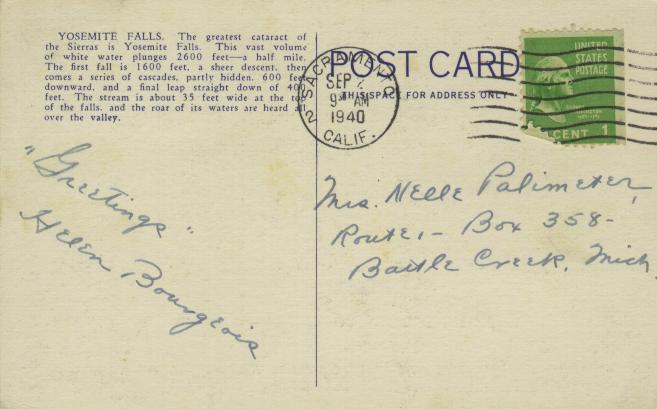 YOSEMITE FALLS. The greatest cataract of
the Sierras is Yosemite Falls. This vast volume
of white water plunges 2600 feet—a half mile.
The first fall is 1600 feet, a sheer descent, then
comes a series of cascades, partly hidden, 600 feet
downward, and a final leap straight down of 400
feet. The stream is about 35 feet wide at the top
of the falls, and the roar of its waters are heard all
over the valley.
"Greetings"
Helen Bourgeois
POST CARD
THIS SPACE FOR ADDRESS ONLY
SACRAMENTO
SEP
9 AM
1940
2 CALIF.
UNITED
STATES
POSTAGE
CENT 1
Mrs. Nelle Palimeter,
Route 1 - Box 358-
Battle Creek, Mich.